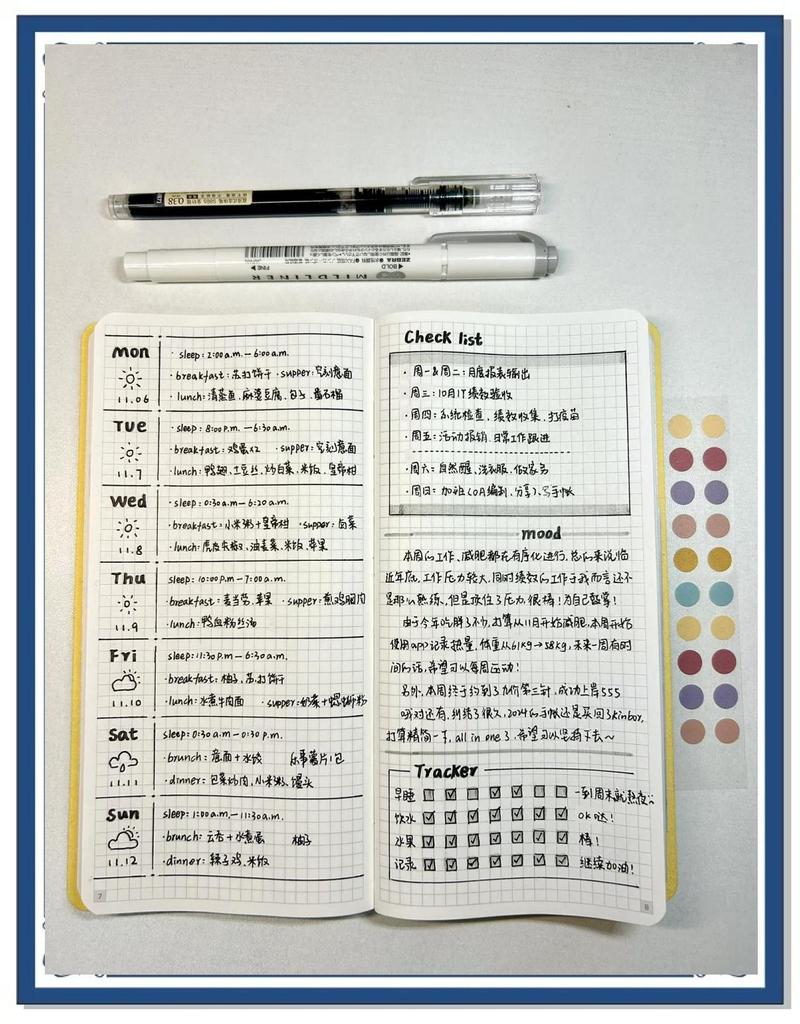 0.38
MILDLINER
ZEBRA
BOLD
FINE
Mon
11.06
sleep: 2:00a.m. — 6:00a.m.
· breakfast: 苏打饼干 · supper: 空刻意面
· lunch: 清蒸鱼、麻婆豆腐、包子、番石榴
Tue
11.7
sleep: 8:00p.m. — 6:30a.m.
· breakfast: 鸡蛋x2 · supper: 空刻意面
· lunch: 鸭翅、土豆丝、炒白菜、米饭、皇帝柑
Wed
11.8
· sleep: 0:30a.m — 6:20a.m.
· breakfast: 小米粥+皇帝柑 · supper: 卤菜
· lunch: 虎皮东坡、油麦菜、米饭、苹果
Thu
11.9
sleep: 10:00p.m — 7:00a.m.
· breakfast: 麦当劳、苹果 · supper: 煎鸡胸肉
· lunch: 鸭血粉丝汤
Fri
11.10
sleep: 11:30p.m — 6:30a.m.
· breakfast: 柚子、苏打饼干
· lunch: 水煮牛肉面 · supper: 奶茶+螺蛳粉
Sat
11.11
sleep: 0:30a.m — 0:30p.m.
· brunch: 意面+水饺 乐事薯片1包
· dinner: 包菜炒肉、小米粥、馒头
Sun
11.12
sleep: 1:00a.m. — 11:30a.m.
· brunch: 云吞+水煮蛋 柚子
· dinner: 辣子鸡、米饭
7
Check list
· 周一&周二: 月度报表输出
· 周三: 10月IT绩效验收
· 周四: 系统检查、绩效收集、打疫苗
· 周五: 活动报销、日常工作跟进
· 周六: 自然醒、洗衣服、做家务
· 周日: 加班(OA编制、分享)、写手帐
mood
本周的工作、减肥都在有序化进行。总的来说临
近年底,工作压力较大,同时绩效的工作于我而言还不
是那么熟练,但是顶住了压力,很棒!为自己鼓掌!
由于今年吃胖了不少,打算从11月开始减肥,本周开始
使用app记录热量,体重从61kg→58kg,未来一周有时
间的话,希望可以每周运动!
另外,本周终于约到了九价第三针,成功上岸555
哦对还有,纠结了很久,2024的手帐还是买回了kinbor,
打算精简一下,all in one了,希望可以坚持下去~
Tracker
早睡 一到周末就熬夜
饮水 OK哒!
水果 棒!
记录 继续加油!
8